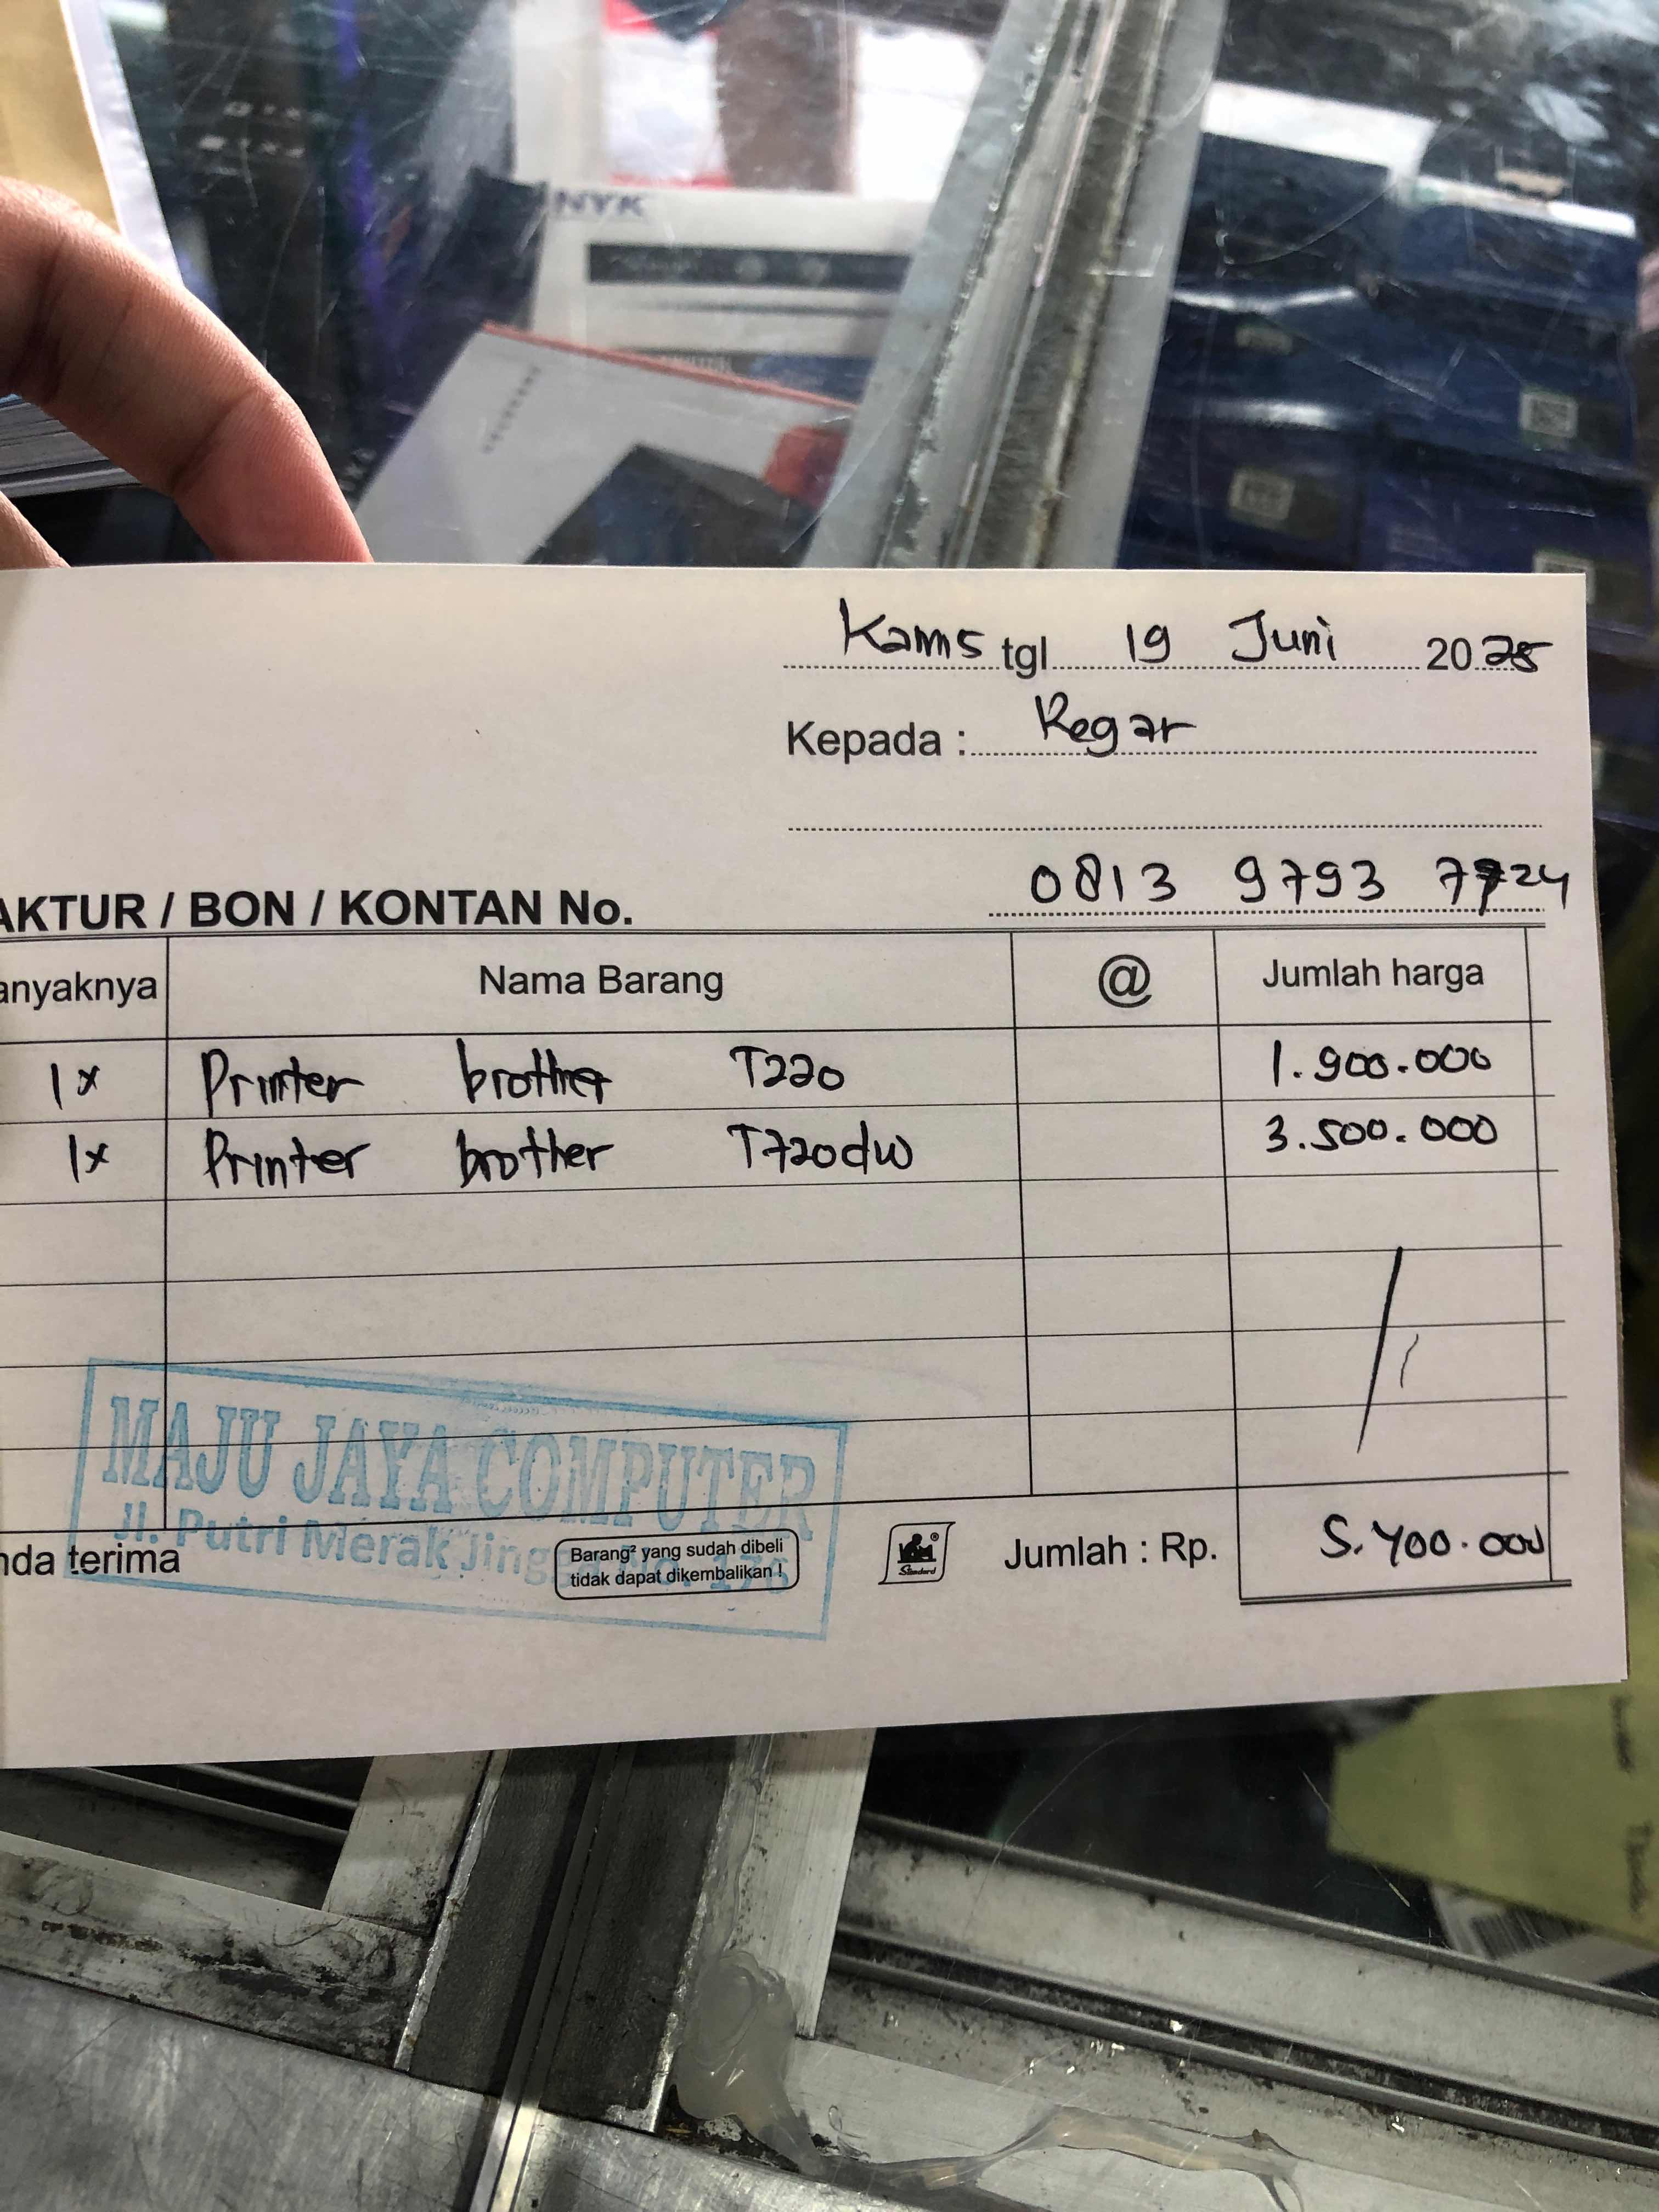 NYK
Kamis tgl 19 Juni 2025
Kepada : Regar
0813 9793 7724
AKTUR / BON / KONTAN No.
anyaknya Nama Barang @ Jumlah harga
1x Printer brother T220 1.900.000
1x Printer brother T720dw 3.500.000
MAJU JAYA COMPUTER
Jl. Putri Merak Jingga No. 176
nda terima
Barang² yang sudah dibeli
tidak dapat dikembalikan !
Standard
Jumlah : Rp. 5.400.000